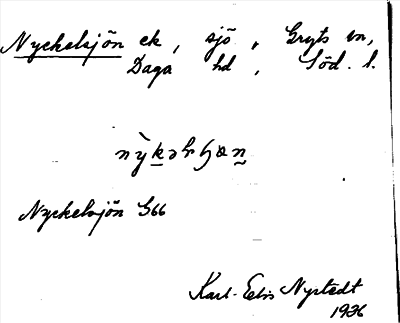 Nyckelsjön ek, sjö, Gryts sn,
Daga hd, Söd. l.
Nyckelsjön G66
Karl-Eric Nystedt
1936